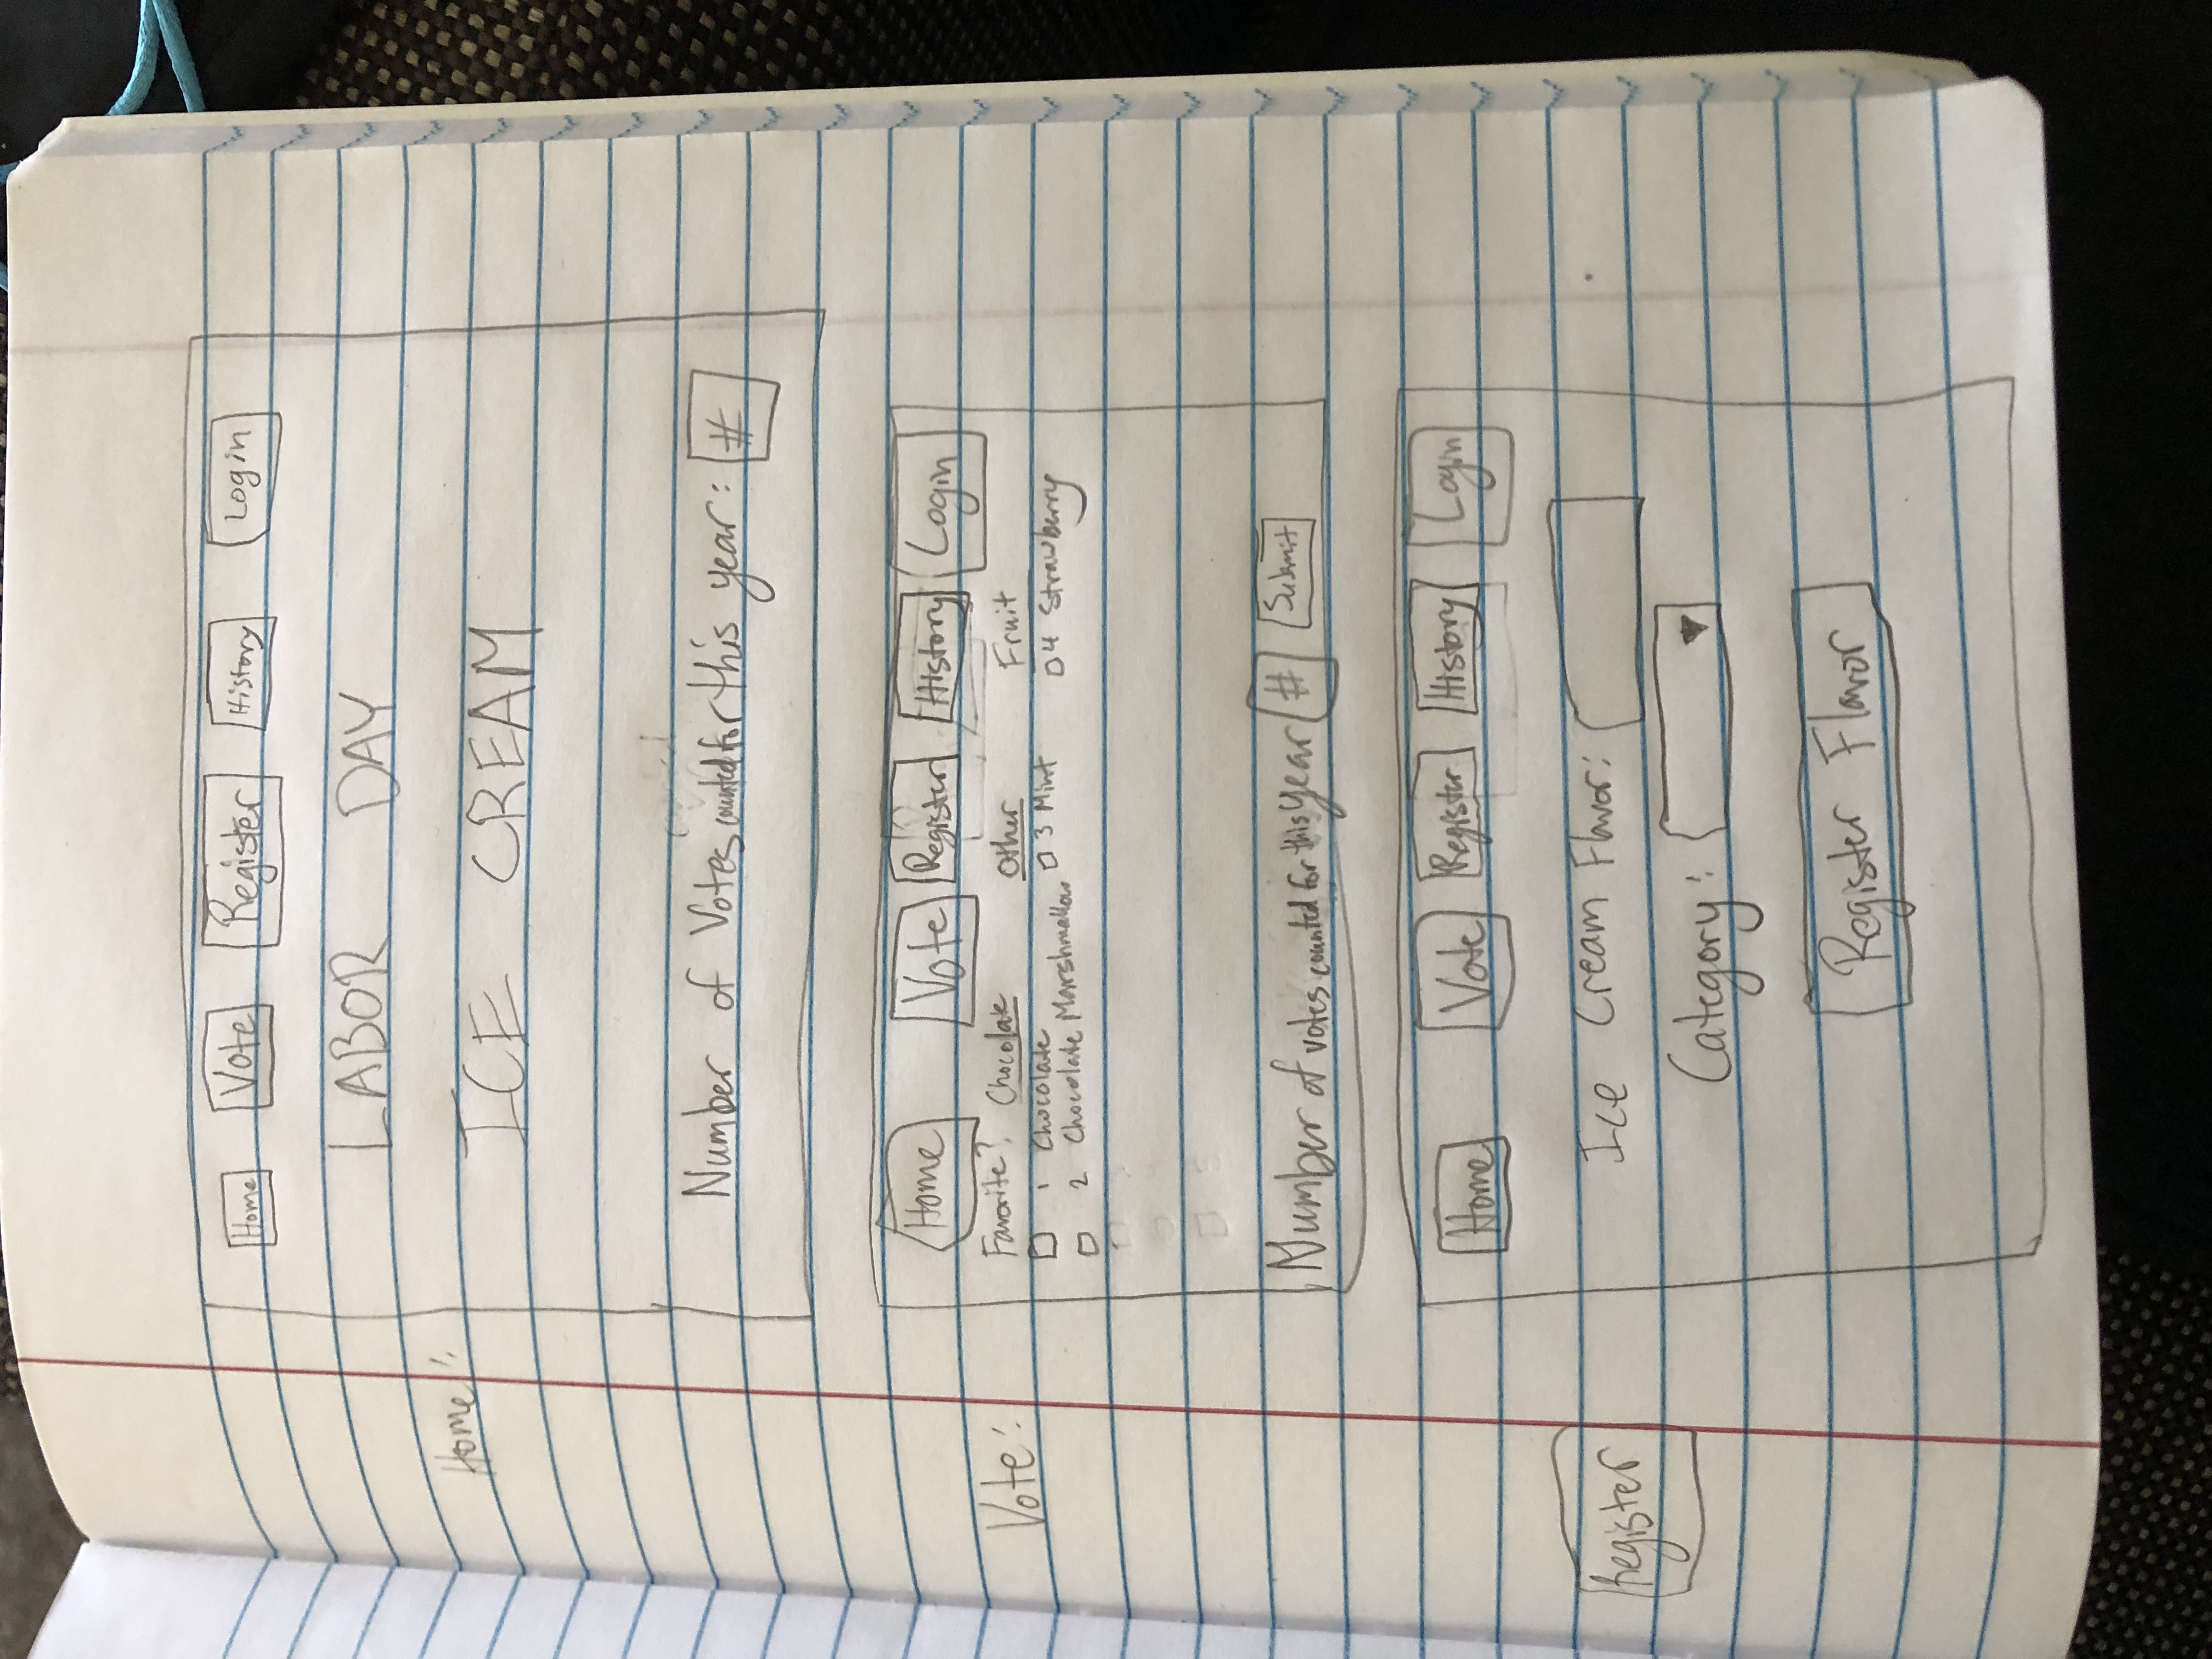 Home Vote Register History Login
LABOR DAY
Home:
ICE CREAM
Number of Votes counted for this year: #
Home Vote Register History Login
Vote:
Favorite? Chocolate Other Fruit
1 Chocolate 3 Mint 4 Strawberry
2 Chocolate Marshmallow
Number of votes counted for this year # Submit
Home Vote Register History Login
Register
Ice Cream Flavor:
Category:
Register Flavor